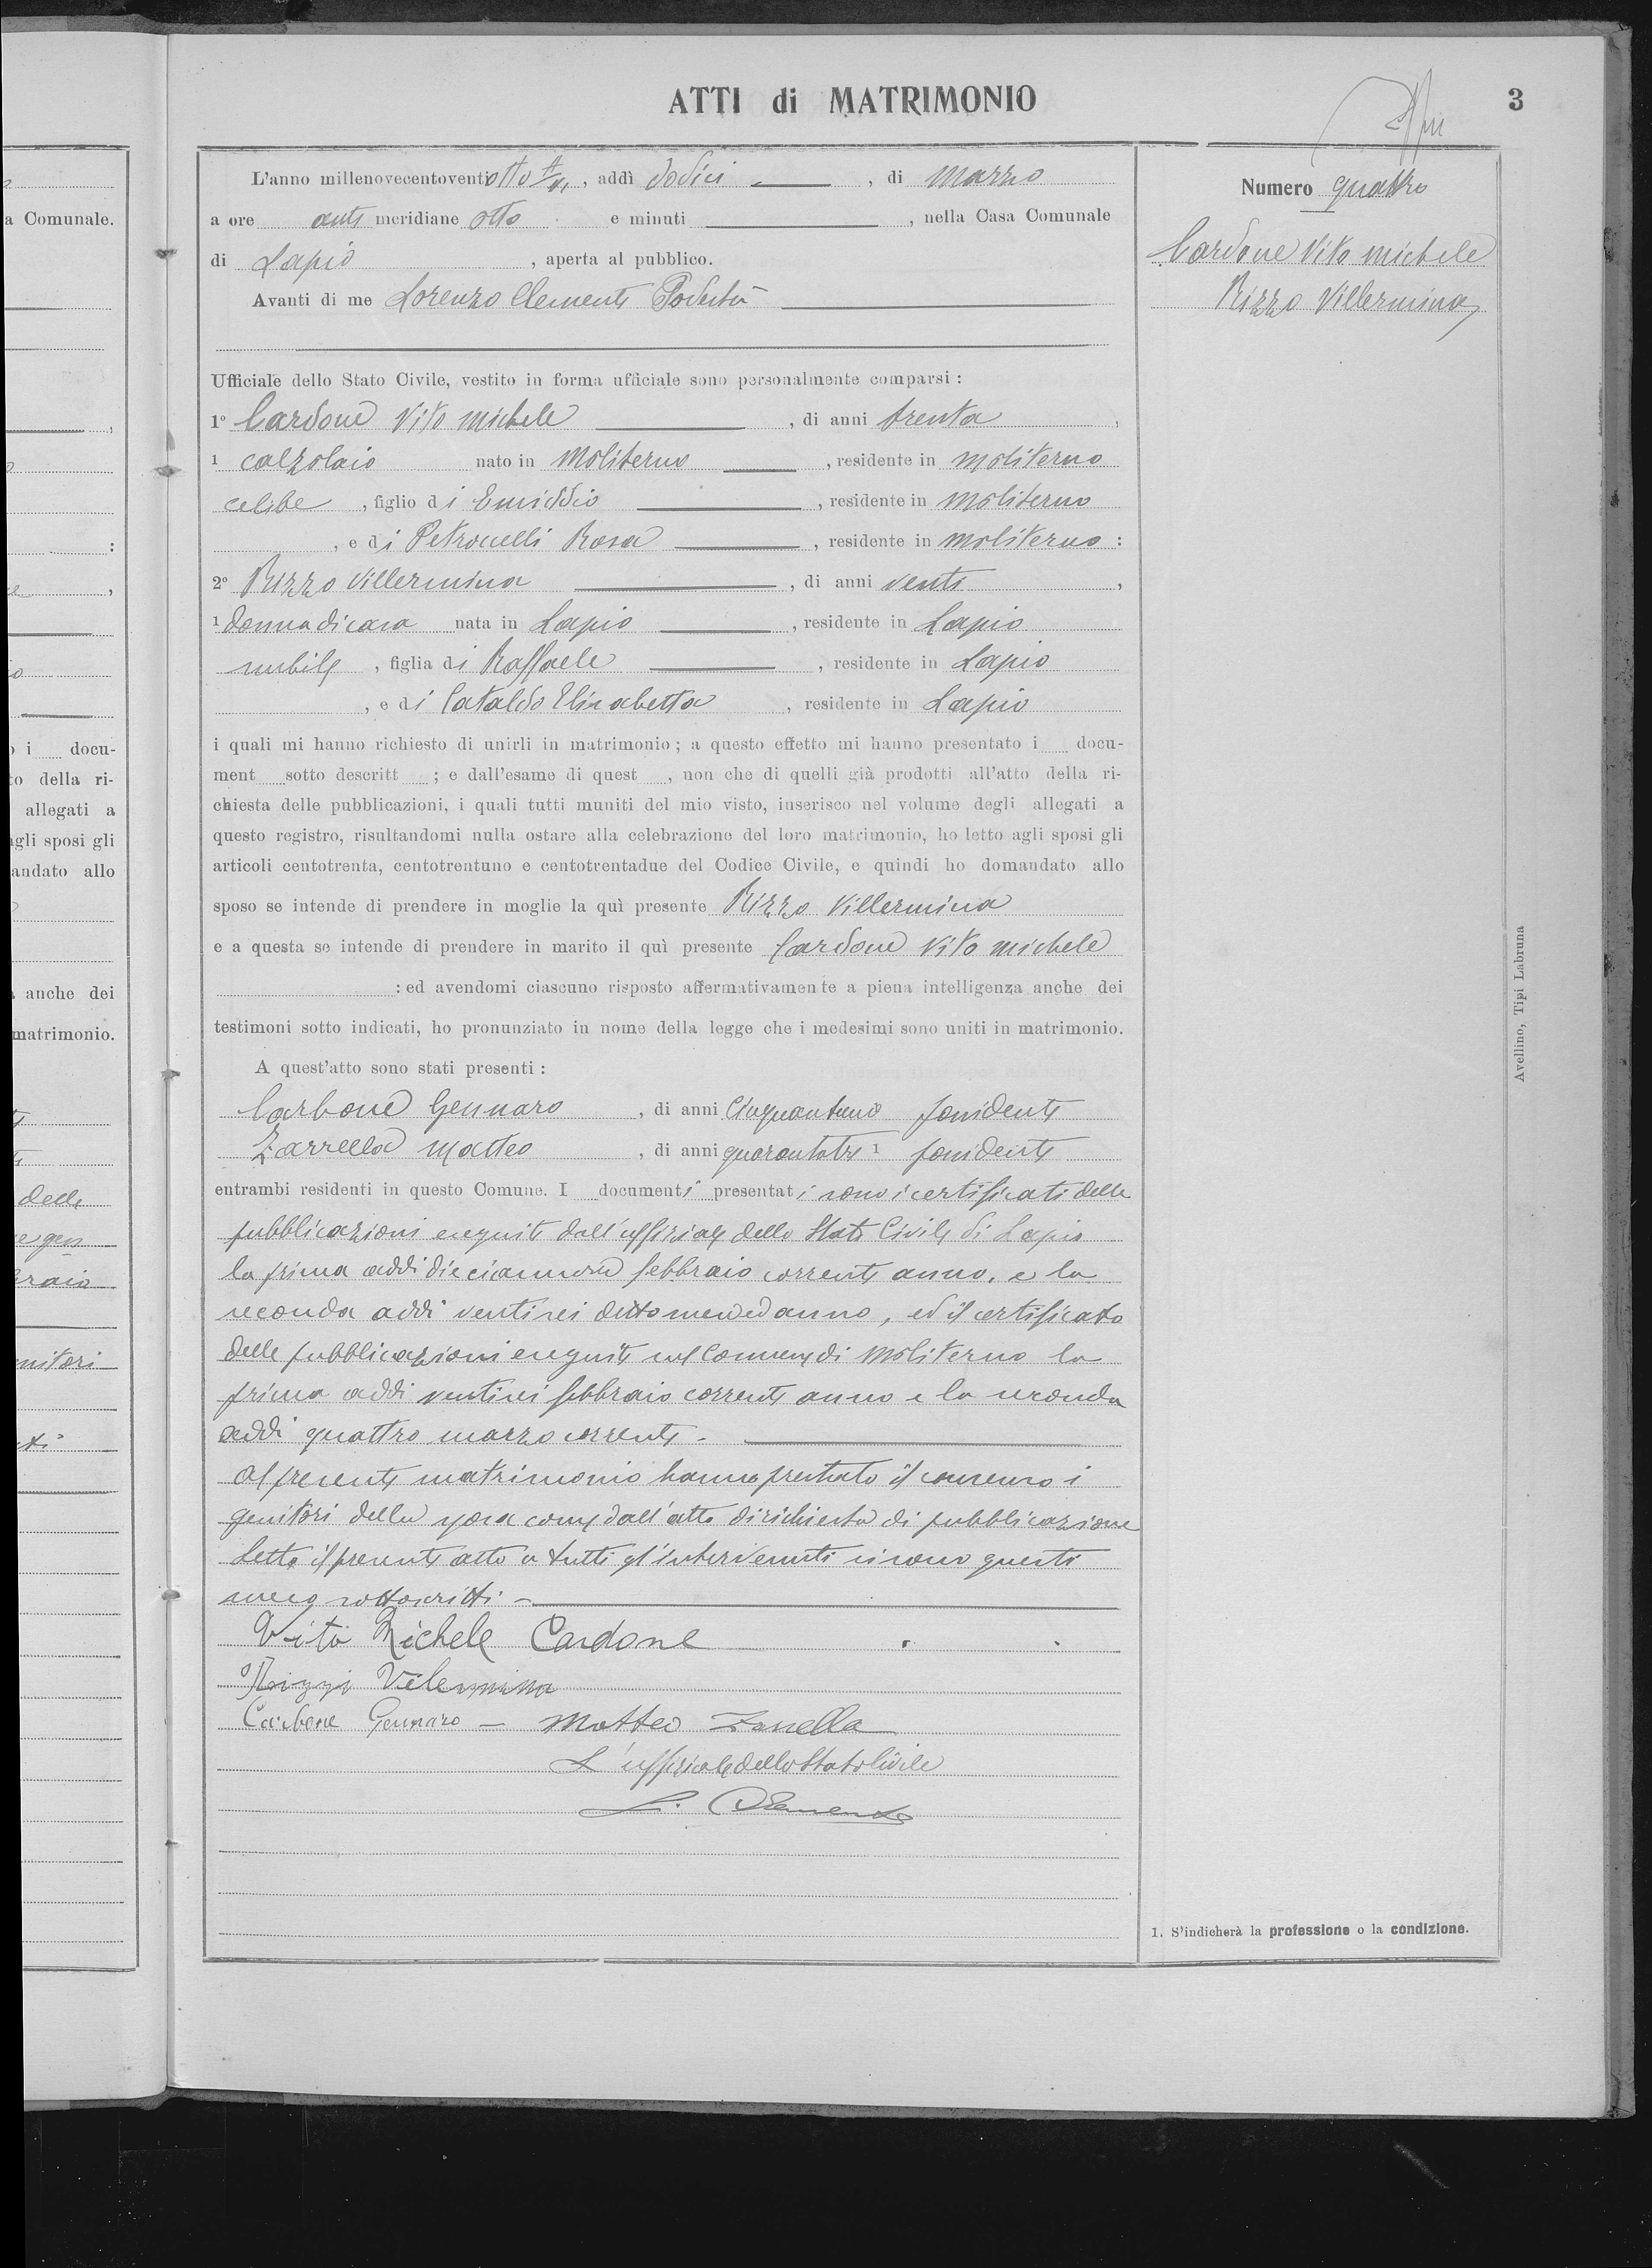 ATTI di MATRIMONIO
3
L'anno millenovecentoventiotto, addì dodici, di marzo
a ore anti meridiane otto e minuti, nella Casa Comunale
di Lapio, aperta al pubblico.
Avanti di me Lorenzo Clemente Podestà
Ufficiale dello Stato Civile, vestito in forma ufficiale sono personalmente comparsi :
1º Cardone Vito Michele, di anni trenta,
1 calzolaio nato in Moliterno, residente in Moliterno
celibe, figlio di Emiddio, residente in Moliterno
, e di Petrocelli Rosa, residente in Moliterno :
2º Rizzo Villermina, di anni venti,
1 donna di casa nata in Lapio, residente in Lapio
nubile, figlia di Raffaele, residente in Lapio
, e di Cataldo Elisabetta, residente in Lapio
i quali mi hanno richiesto di unirli in matrimonio ; a questo effetto mi hanno presentato i docu-
ment sotto descritt ; e dall'esame di quest , non che di quelli già prodotti all'atto della ri-
chiesta delle pubblicazioni, i quali tutti muniti del mio visto, inserisco nel volume degli allegati a
questo registro, risultandomi nulla ostare alla celebrazione del loro matrimonio, ho letto agli sposi gli
articoli centotrenta, centotrentuno e centotrentadue del Codice Civile, e quindi ho domandato allo
sposo se intende di prendere in moglie la quì presente Rizzo Villermina
e a questa se intende di prendere in marito il quì presente Cardone Vito Michele
: ed avendomi ciascuno risposto affermativamente a piena intelligenza anche dei
testimoni sotto indicati, ho pronunziato in nome della legge che i medesimi sono uniti in matrimonio.
A quest'atto sono stati presenti :
Carbone Gennaro, di anni cinquantuno possidente
Zarrella Matteo, di anni quarantatre 1 possidente
entrambi residenti in questo Comune. I documenti presentati sono i certificati delle
pubblicazioni eseguite dall'uffiziale dello Stato Civile di Lapio
la prima addi diciannove febbraio corrente anno, e la
seconda addi ventisei detto mese ed anno, ed il certificato
delle pubblicazioni eseguite nel Comune di Moliterno la
prima addi ventisei febbraio corrente anno e la seconda
addi quattro marzo corrente.
Al presente matrimonio hanno prestato il consenso i
genitori della sposa come dall'atto di richiesta di pubblicazione
Letto il presente atto a tutti gl'intervenuti si sono questi
meco sottoscritti -
Vito Michele Cardone
Rizzi Vilermina
Carbone Gennaro - Matteo Zarrella
L'uffiziale dello Stato Civile
L. Clemente
Numero quattro
Cardone Vito Michele
Rizzo Villermina
Avellino, Tipi Labruna
1. S'indicherà la professione o la condizione.
a Comunale.
o i docu-
to della ri-
allegati a
agli sposi gli
andato allo
anche dei
matrimonio.
delle